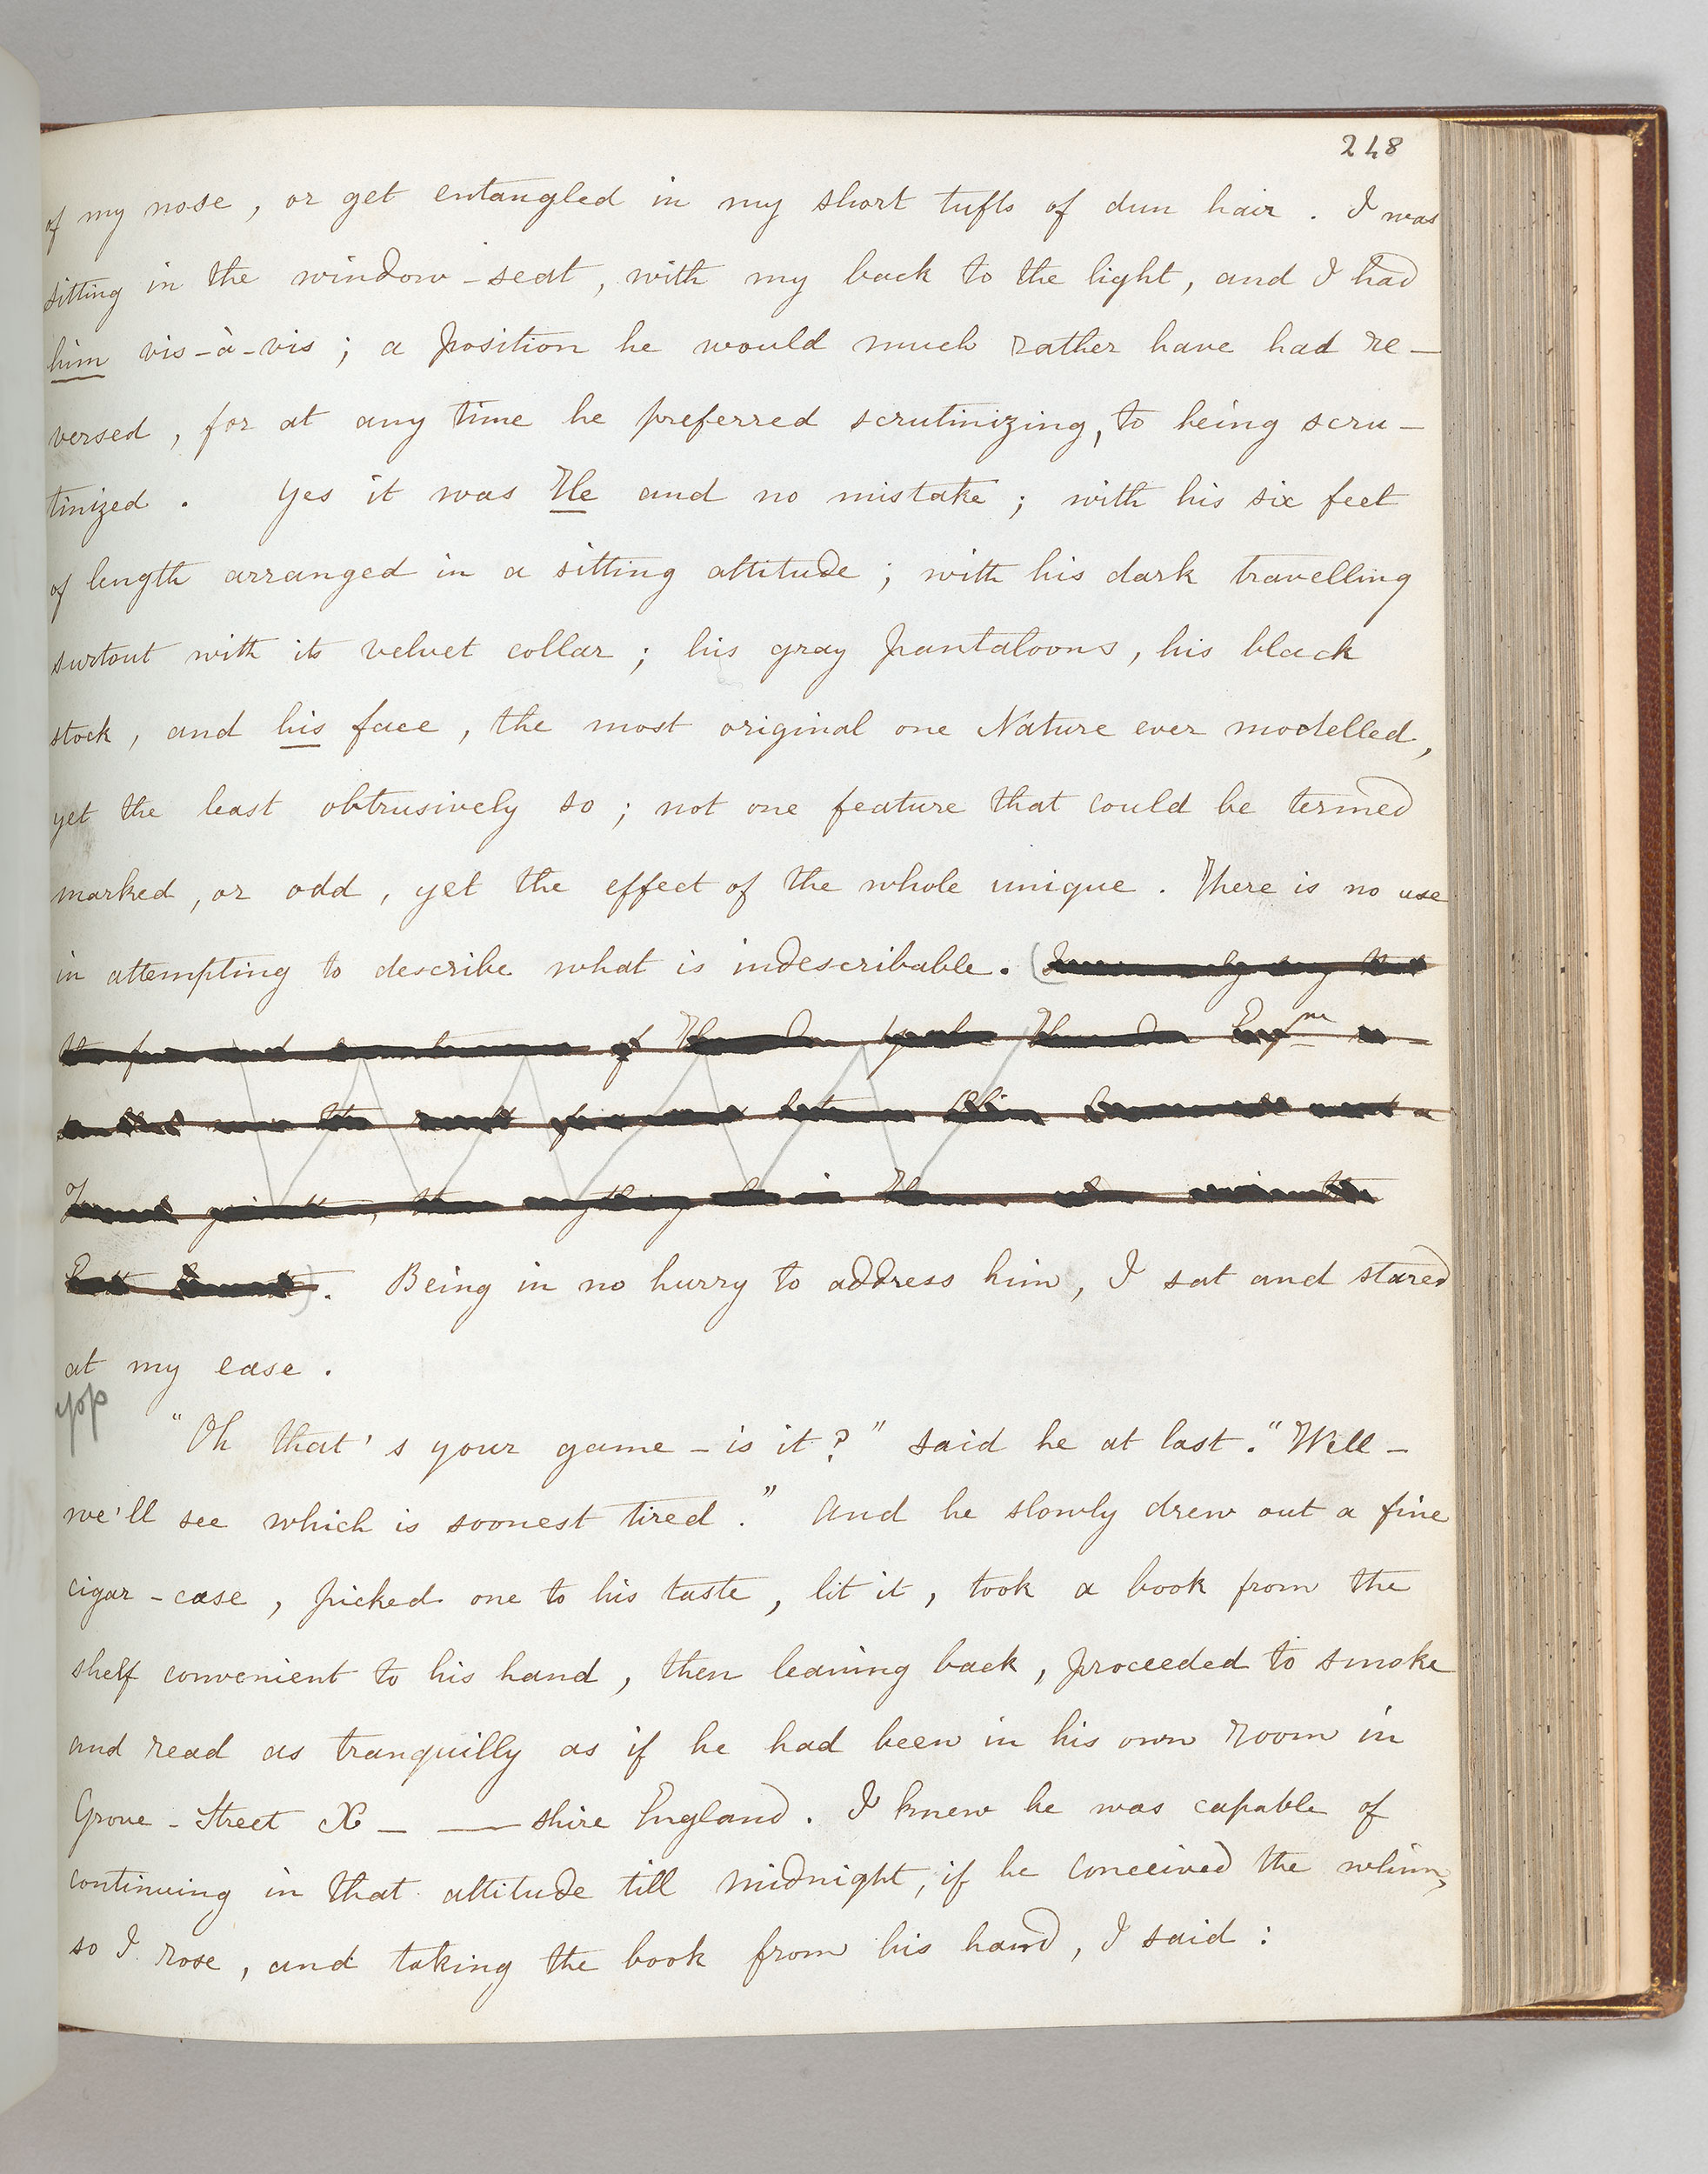 248
of my nose, or get entangled in my short tufts of dun hair. I was
sitting in the window-seat, with my back to the light, and I had
him vis-à-vis; a position he would much rather have had re-
versed, for at any time he preferred scrutinizing, to being scru-
tinized. Yes it was He and no mistake; with his six feet
of length arranged in a sitting attitude; with his dark travelling
surtout with its velvet collar; his gray pantaloons, his black
stock, and his face, the most original one Nature ever modelled,
yet the least obtrusively so; not one feature that could be termed
marked, or odd, yet the effect of the whole unique. There is no use
in attempting to describe what is indescribable. (
of
).  Being in no hurry to address him, I sat and stared
at my ease.
"Oh that's your game – is it?" said he at last. "Well –
we'll see which is soonest tired." And he slowly drew out a fine
cigar-case, picked one to his taste, lit it, took a book from the
shelf convenient to his hand, then leaning back, proceeded to smoke
and read as tranquilly as if he had been in his own room in
Grove-Street X— ——shire England. I knew he was capable of
continuing in that attitude till midnight, if he conceived the whim,
so I rose, and taking the book from his hand, I said: